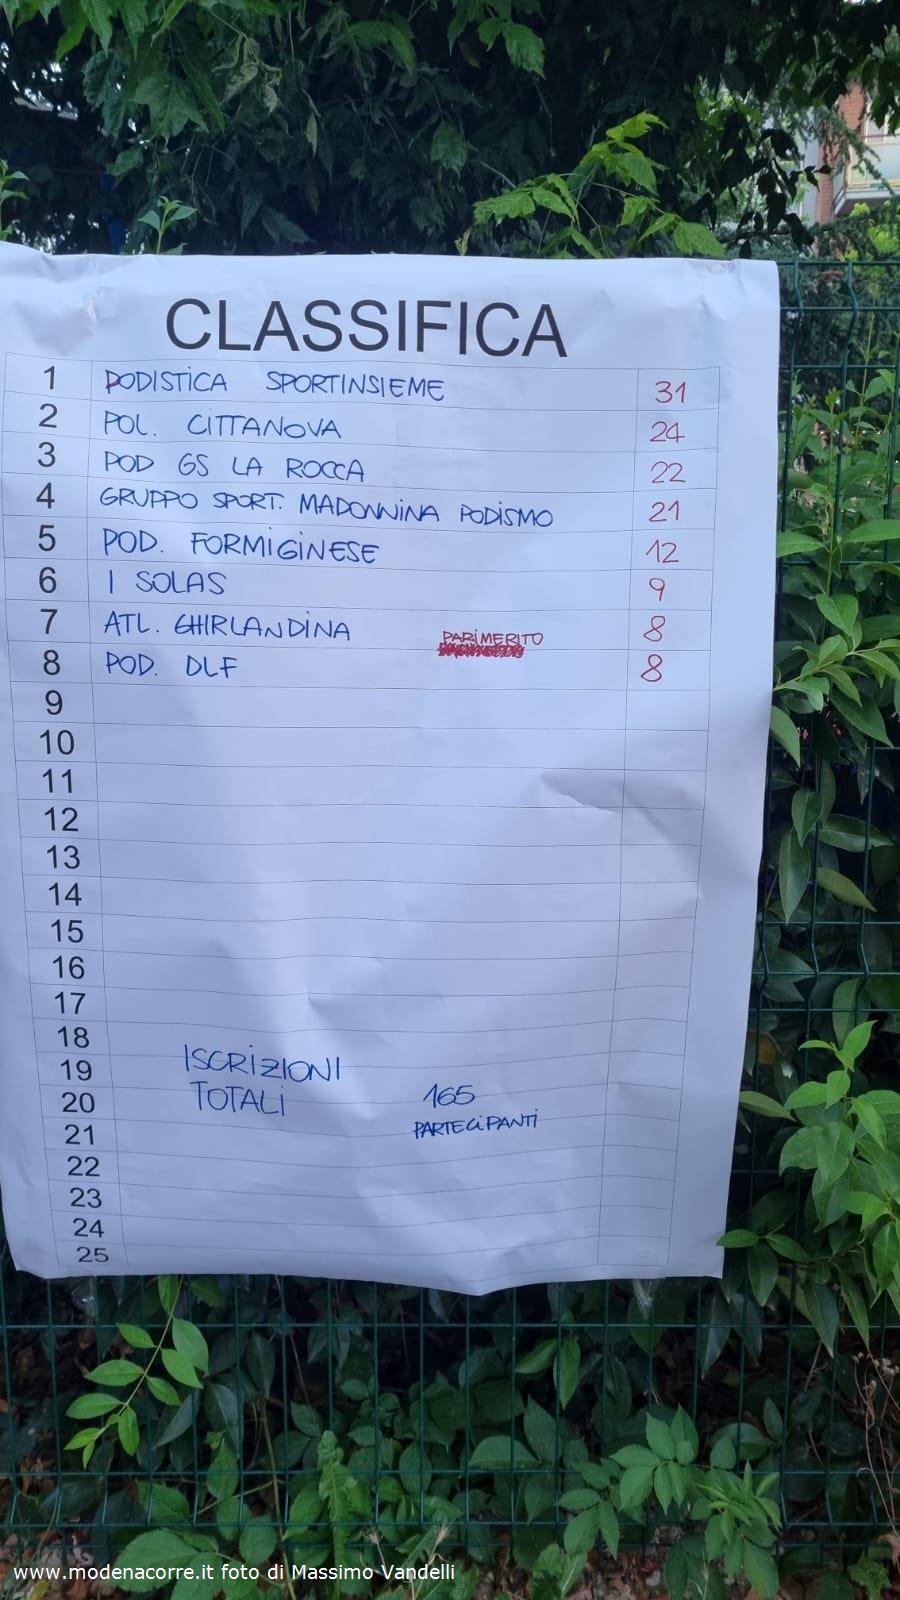 CLASSIFICA
1 PODISTICA SPORTINSIEME 31
2 POL. CITTANOVA 24
3 POD GS LA ROCCA 22
4 GRUPPO SPORT. MADONNINA PODISMO 21
5 POD. FORMIGINESE 12
6 I SOLAS 9
7 ATL. GHIRLANDINA PARIMERITO 8
8 POD. DLF 8
9
10
11
12
13
14
15
16
17
18
19 ISCRIZIONI
20 TOTALI 165
21 PARTECIPANTI
22
23
24
25
www.modenacorre.it foto di Massimo Vandelli